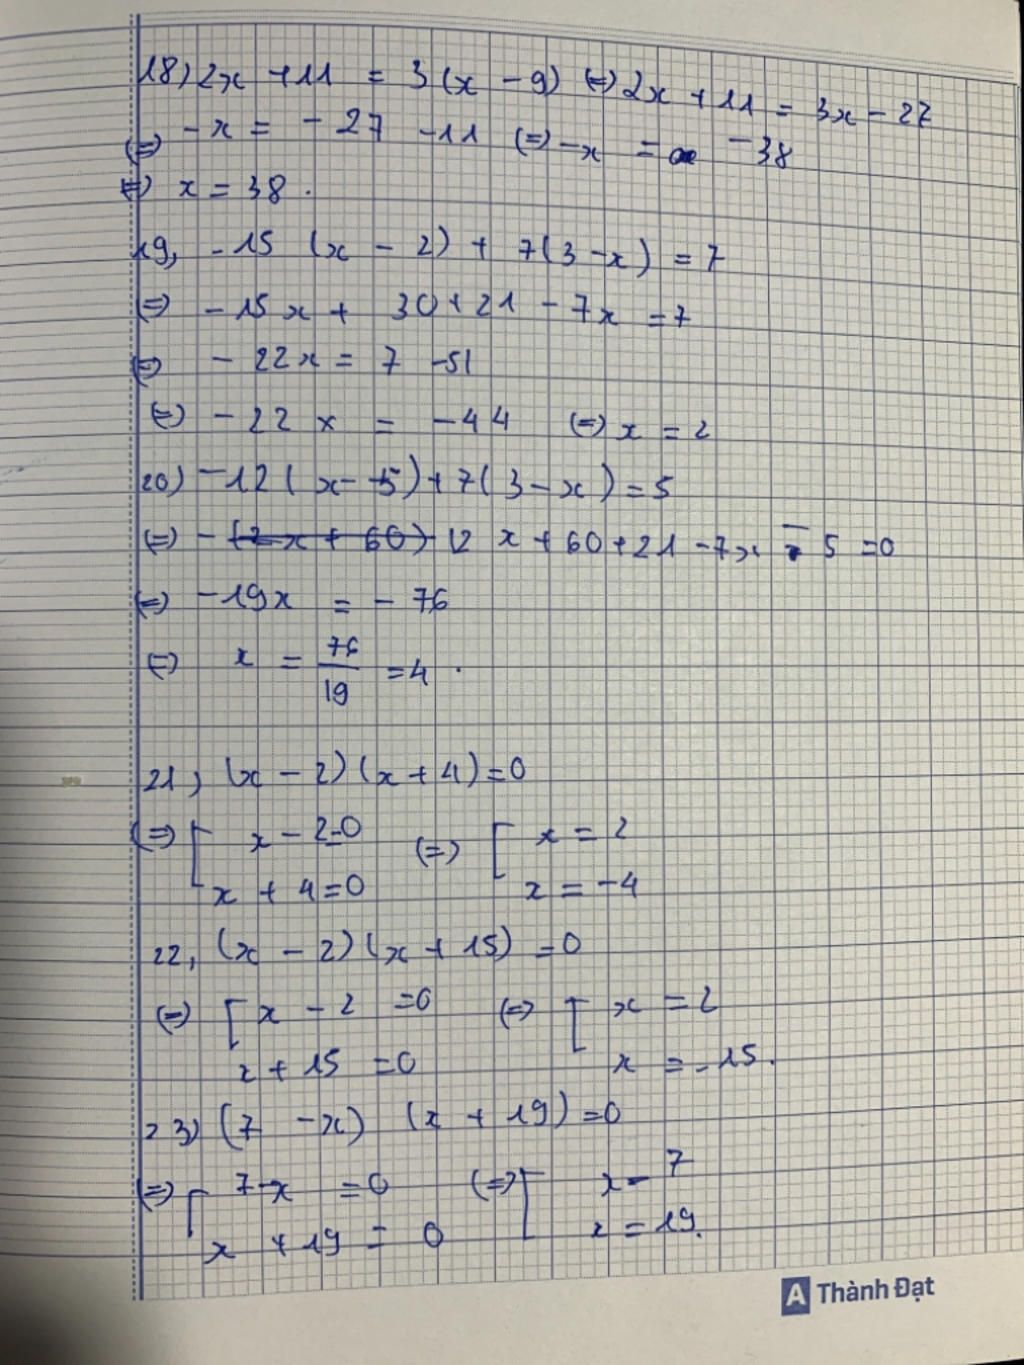 18) 2x + 11 = 3(x - 9) (=) 2x + 11 = 3x - 27
(=) -x = - 27 - 11 (=) -x = - 38
(=) x = 38.
19, -15 (x - 2) + 7(3 - x) = 7
(=) - 15x + 30 + 21 - 7x = 7
(=) - 22x = 7 - 51
(=) - 22x = - 44 (=) x = 2
20) -12(x - 5) + 7(3 - x) = 5
(=) - 12x + 60 + 21 - 7x - 5 = 0
(=) -19x = - 76
(=) x = 76/19 = 4.
21, (x - 2)(x + 4) = 0
(=) [ x - 2 = 0 (=) [ x = 2
x + 4 = 0 x = -4
22, (x - 2)(x + 15) = 0
(=) [ x - 2 = 0 (=) [ x = 2
x + 15 = 0 x = -15.
23) (7 - x) (x + 19) = 0
(=) [ 7 - x = 0 (=) [ x = 7
x + 19 = 0 x = 19.
A Thành Đạt